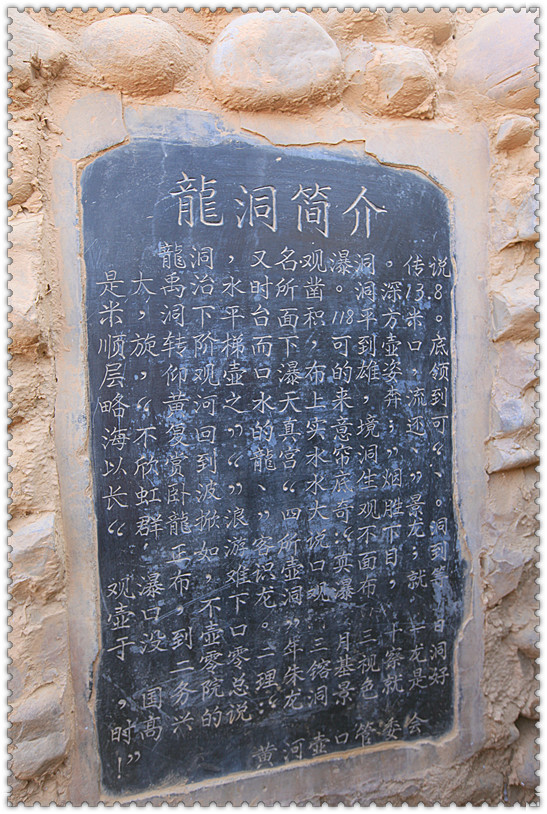 龍洞简介
龍洞，又名观瀑洞。传说
是大禹治水时所凿。洞深13.8
米，洞下平台面积118平方米。
顺旋转阶梯而下，可到壶口底
层，仰观壶口瀑布的雄姿，领
略“黄河之水天上来，奔流到
海不复回”的真实意境；还可
以欣赏到“龍宫水帘洞”、“
长虹卧波”、“水底生烟”、
“群龍掀浪”四大奇观胜景。
正如游客所说：不下龙洞
观瀑布，难识壶口真面目；到
壶口，不下龙洞观瀑布，就等
于没到壶口。
二零零二年三月三十一日
，国务院总理朱镕基视察龙洞
时高兴的说：“龙洞景色就是好
！”
黄河壶口管委会